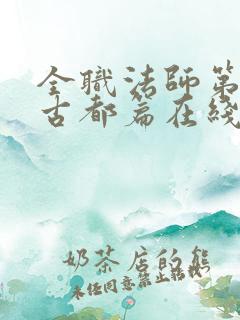 全職法師第
古都篇在綫
奶茶店的熊
未经同意禁止转载